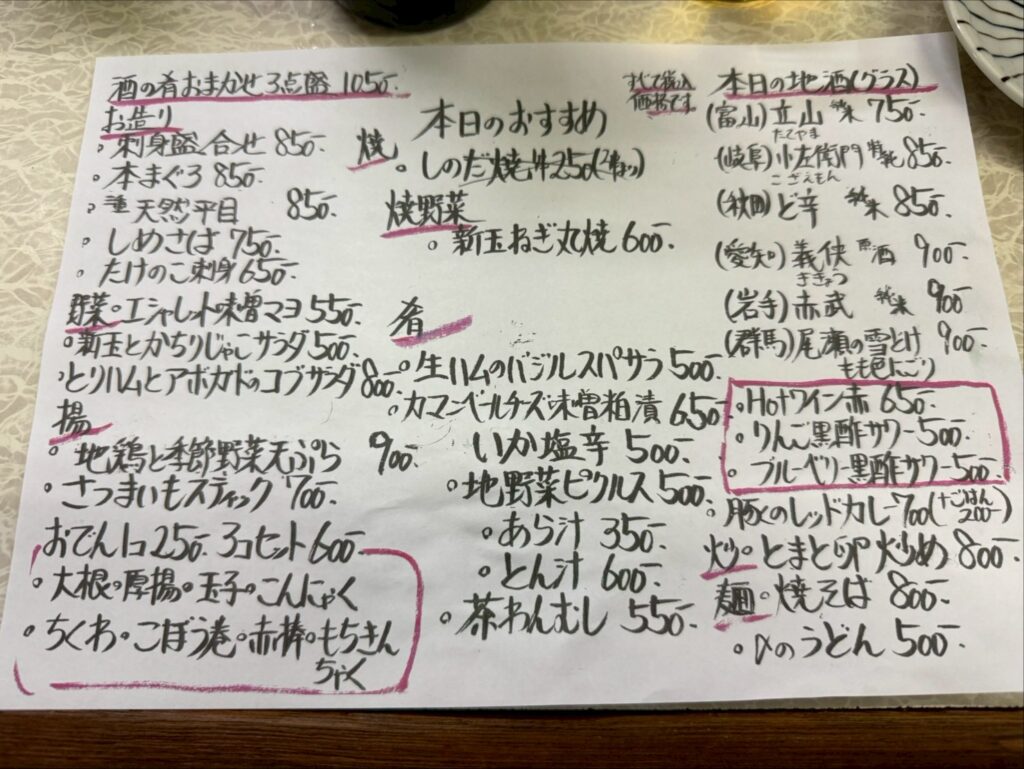 酒の肴おまかせ3点盛 1050-
お造り
。刺身盛合せ 850-
。本まぐろ 850-
。天然平目 850-
。しめさば 750-
。たけのこ刺身 650-
野菜。エシャレット味噌マヨ 550-
。新玉とかちりじゃこサラダ 500-
。とりハムとアボカドのコブサラダ 800-
揚
。地鶏と季節野菜天ぷら 900-
。さつまいもスティック 700-
おでん1コ250- 3コセット600-
。大根。厚揚。玉子。こんにゃく
。ちくわ。ごぼう巻。赤棒。もちきん
ちゃく
本日のおすすめ
焼
。しのだ焼 250
焼野菜
。新玉ねぎ丸焼 600-
肴
。生ハムのバジルスパサラ 500-
。カマンベールチーズ味噌粕漬 650-
いか塩辛 500-
。地野菜ピクルス 500-
。あら汁 350-
。とん汁 600-
。茶わんむし 550-
すべて税込
価格です
本日の地酒(グラス)
(富山) 立山 750-
たてやま
(岐阜) 小左衛門 特純 850-
こざえもん
(秋田) ど辛 純米 850-
(愛知) 義侠 原酒 900-
ぎきょう
(岩手) 赤武 純米 900-
(群馬) 尾瀬の雪どけ 900-
ももいろにごり
。Hotワイン赤 650-
。りんご黒酢サワー 500-
。ブルーベリー黒酢サワー 500-
。豚のレッドカレー 700(+ごはん
200-)
炒。とまと卵炒め 800-
麺。焼そば 800-
。のうどん 500-